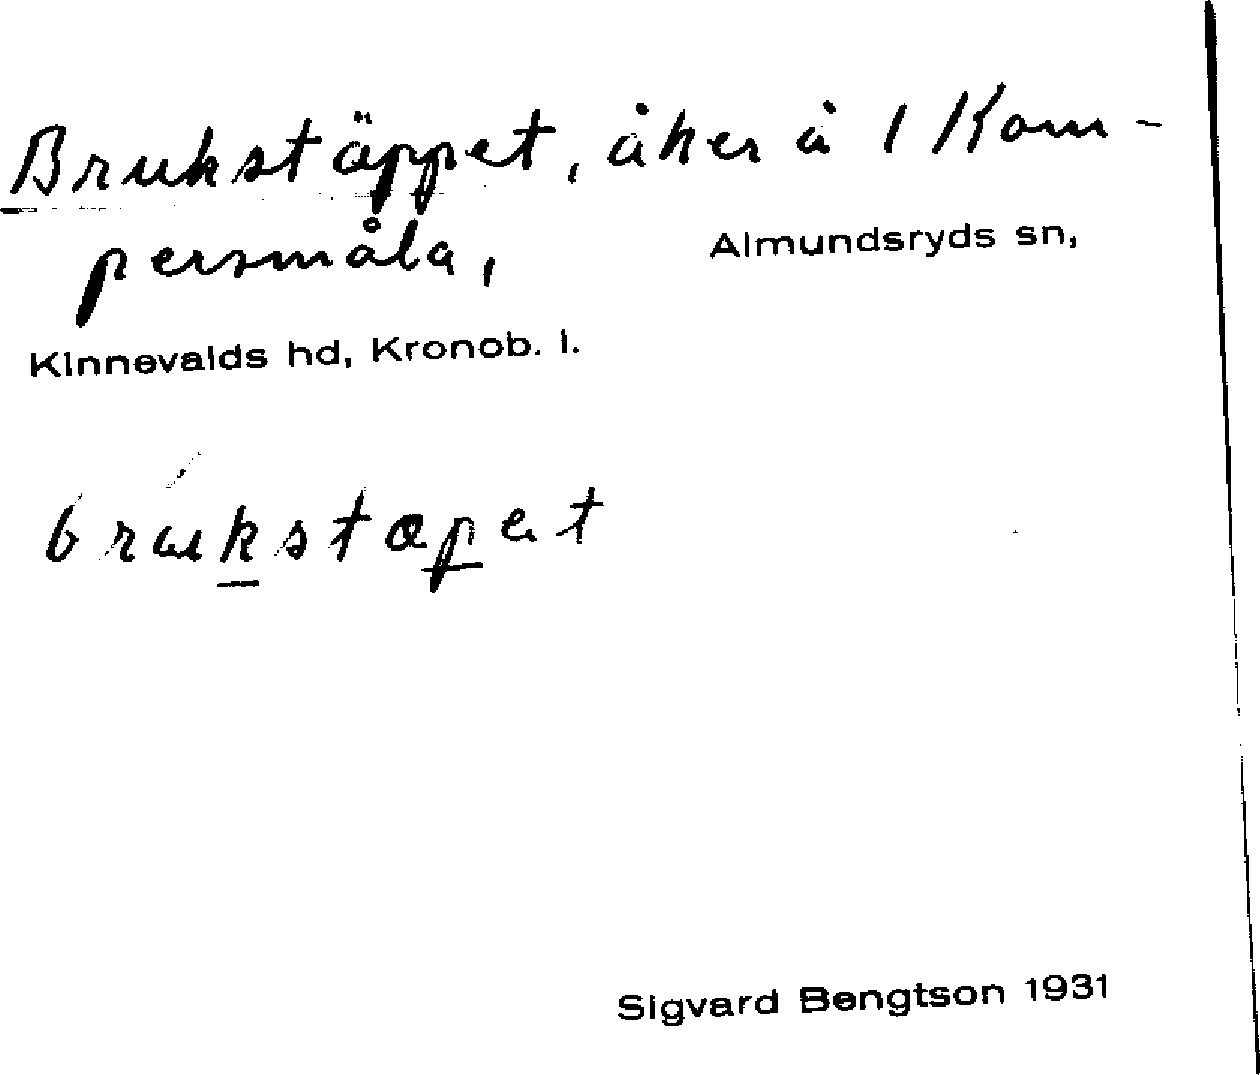 Brukstäppet, åker å 1 Kom-
persmåla, Almundsryds sn,
Kinnevalds hd, Kronob. l.
Sigvard Bengtson 1931